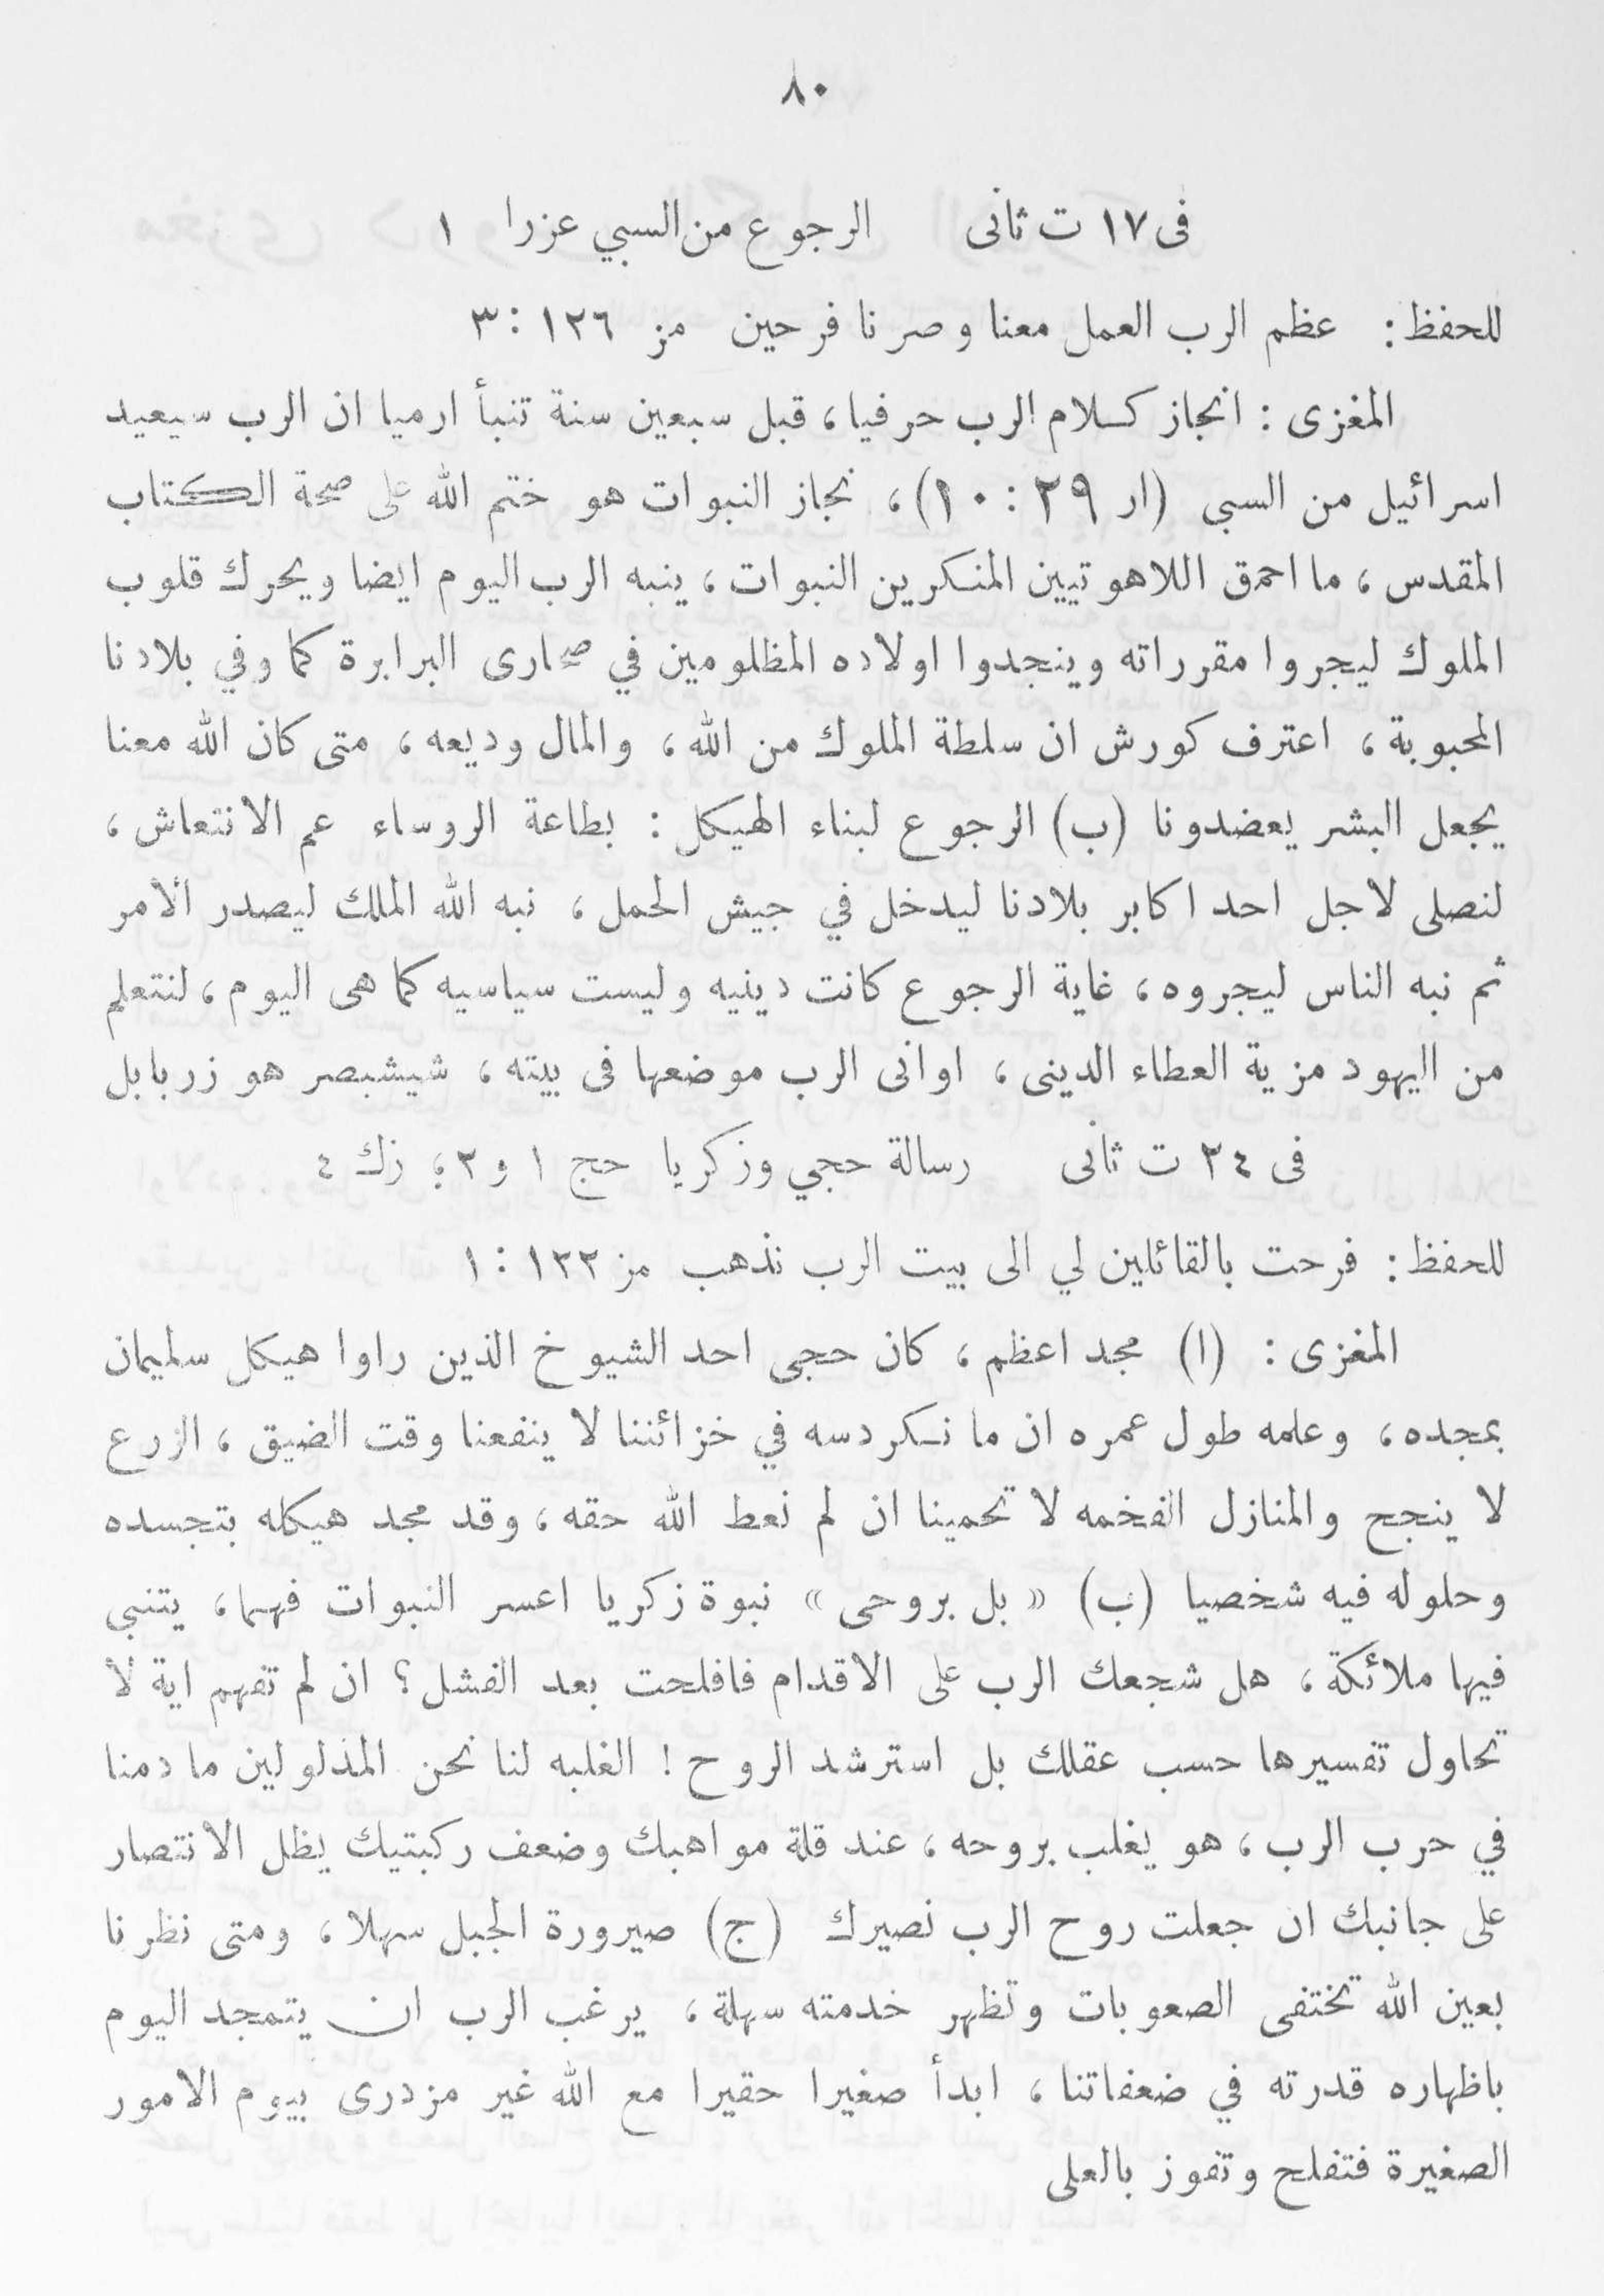 ٨٠
فى ١٧ ت ثانى الرجوع من السبي عزرا ١
للحفظ: عظم الرب العمل معنا وصرنا فرحين مز ١٢٦: ٣
المغزى: انجاز كلام الرب حرفيا، قبل سبعين سنة تنبأ ارميا ان الرب سيعيد
اسرائيل من السبى (ار ٢٩: ١٠)، نجاز النبوات هو ختم الله على صحة الكتاب
المقدس، ما احمق اللاهوتيين المنكرين النبوات، ينبه الرب اليوم ايضا ويحرك قلوب
الملوك ليجروا مقرراته وينجدوا اولاده المظلومين في صحارى البرابرة كما وفي بلادنا
المحبوبة، اعترف كورش ان سلطة الملوك من الله، والمال وديعه، متى كان الله معنا
يجعل البشر يعضدونا (ب) الرجوع لبناء الهيكل: بطاعة الروساء عم الانتعاش،
لنصلى لاجل احد اكابر بلادنا ليدخل في جيش الحمل، نبه الله الملك ليصدر الامر
ثم نبه الناس ليجروه، غاية الرجوع كانت دينيه وليست سياسيه كما هى اليوم، لنتعلم
من اليهود مزية العطاء الدينى، اوانى الرب موضعها فى بيته، شيشبصر هو زربابل
فى ٢٤ ت ثانى رسالة حجي وزكريا حج ١ و٢؛ زك ٤
للحفظ: فرحت بالقائلين لي الى بيت الرب نذهب مز ١٢٢: ١
المغزى: (ا) مجد اعظم، كان حجى احد الشيوخ الذين راوا هيكل سليمان
بمجده، وعلمه طول عمره ان ما نكردسه في خزائننا لا ينفعنا وقت الضيق، الزرع
لا ينجح والمنازل الفخمه لا تحمينا ان لم نعط الله حقه، وقد مجد هيكله بتجسده
وحلوله فيه شخصيا (ب) «بل بروحى» نبوة زكريا اعسر النبوات فهما، يتنبى
فيها ملائكة، هل شجعك الرب على الاقدام فافلحت بعد الفشل؟ ان لم تفهم اية لا
تحاول تفسيرها حسب عقلك بل استرشد الروح! الغلبه لنا نحن المذلولين ما دمنا
في حرب الرب، هو يغلب بروحه، عند قلة مواهبك وضعف ركبتيك يظل الانتصار
على جانبك ان جعلت روح الرب نصيرك (ج) صيرورة الجبل سهلا، ومتى نظرنا
بعين الله تختفى الصعوبات وتظهر خدمته سهلة، يرغب الرب ان يتمجد اليوم
باظهاره قدرته في ضعفاتنا، ابدأ صغيرا حقيرا مع الله غير مزدرى بيوم الامور
الصغيرة فتفلح وتفوز بالعلى